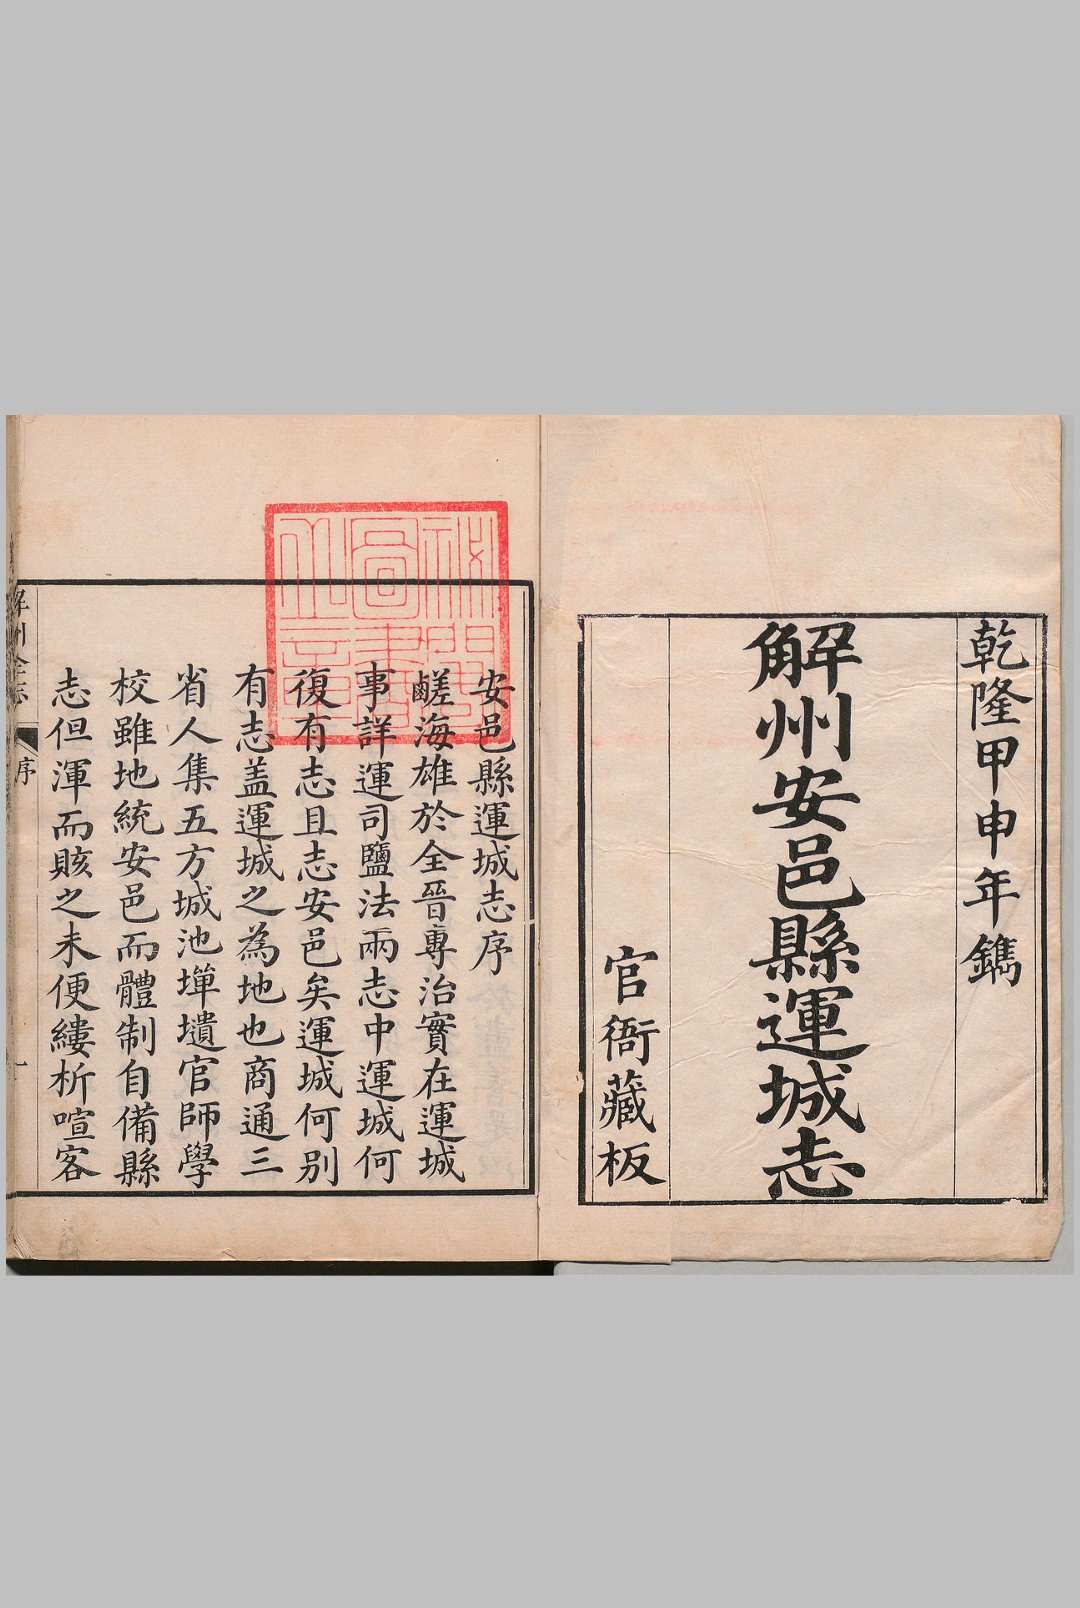 乾隆甲申年鐫
解州安邑縣運城志
官衙藏板
安邑縣運城志序
鹺海雄於全晉專治實在運城
事詳運司鹽法兩志中運城何
復有志且志安邑矣運城何別
有志盖運城之為地也商通三
省人集五方城池墠壝官師學
校雖地統安邑而體制自備縣
志但渾而賅之未便縷析喧客
解州全志
序
一